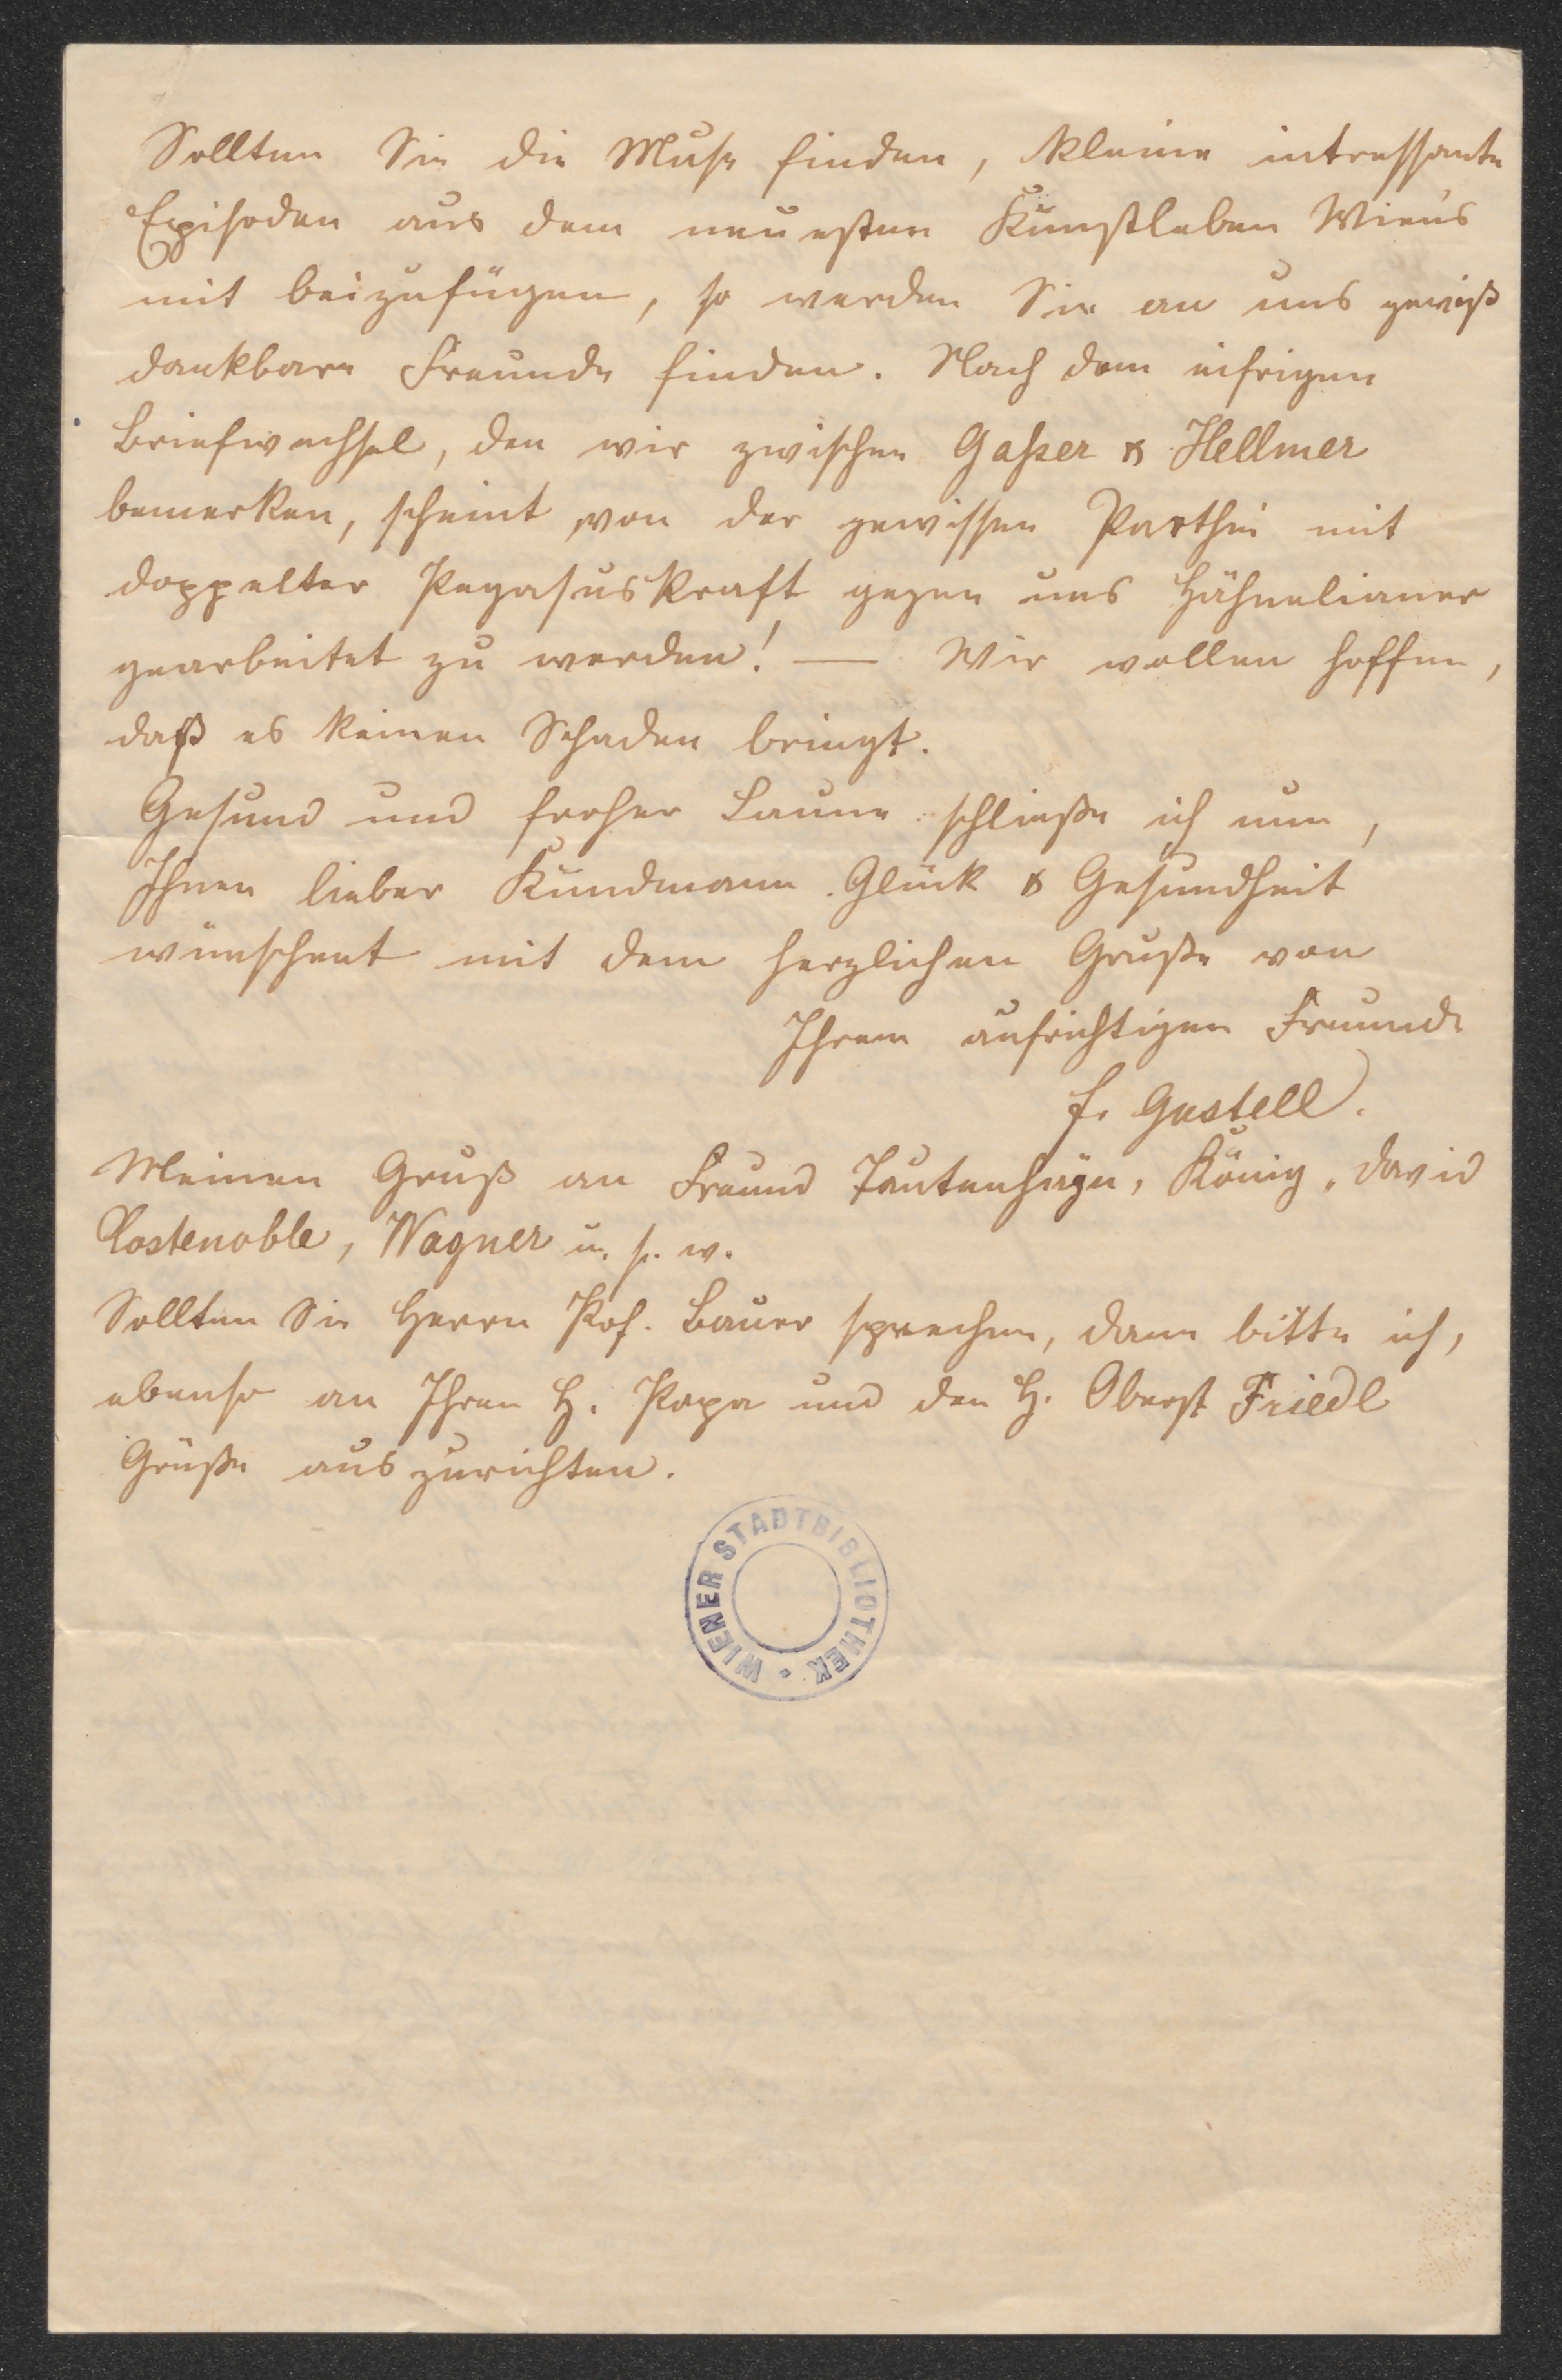 Sollten Sie die Muse finden, kleine intressante
Episoden aus dem neuesten Kunstleben Wiens
mit beizufügen, so werden Sie an uns gewiß
dankbare Freunde finden. Nach dem eifrigen
Briefwechsel, den wir zwischen Gaßer & Hellmer
bemerken, scheint von der gewissen Parthei mit
doppelter Pegasuskraft gegen uns Hähnelianer
gearbeitet zu werden! — Wir wollen hoffen,
daß es keinen Schaden bringt.
Gesund und froher Laune schließe ich nun,
Ihnen lieber Kundmann Glück & Gesundheit
wünschent mit dem herzlichen Gruße von
Ihrem aufrichtigen Freunde
F. Gastell.
Meinen Gruß an Freund Tautenhayn, König, David
Costenoble, Wagner u. s. w.
Sollten Sie Herrn Prof. Bauer sprechen, dann bitte ich,
ebenso an Ihren H. Papa und den H. Oberst Friedl
Grüße auszurichten.
WIENER STADTBIBLIOTHEK